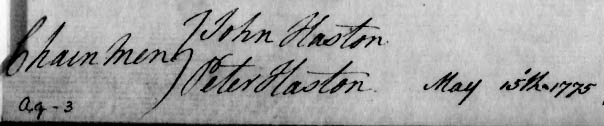 John Haston
Chain men
Peter Haston May 15th 1775
ag-3